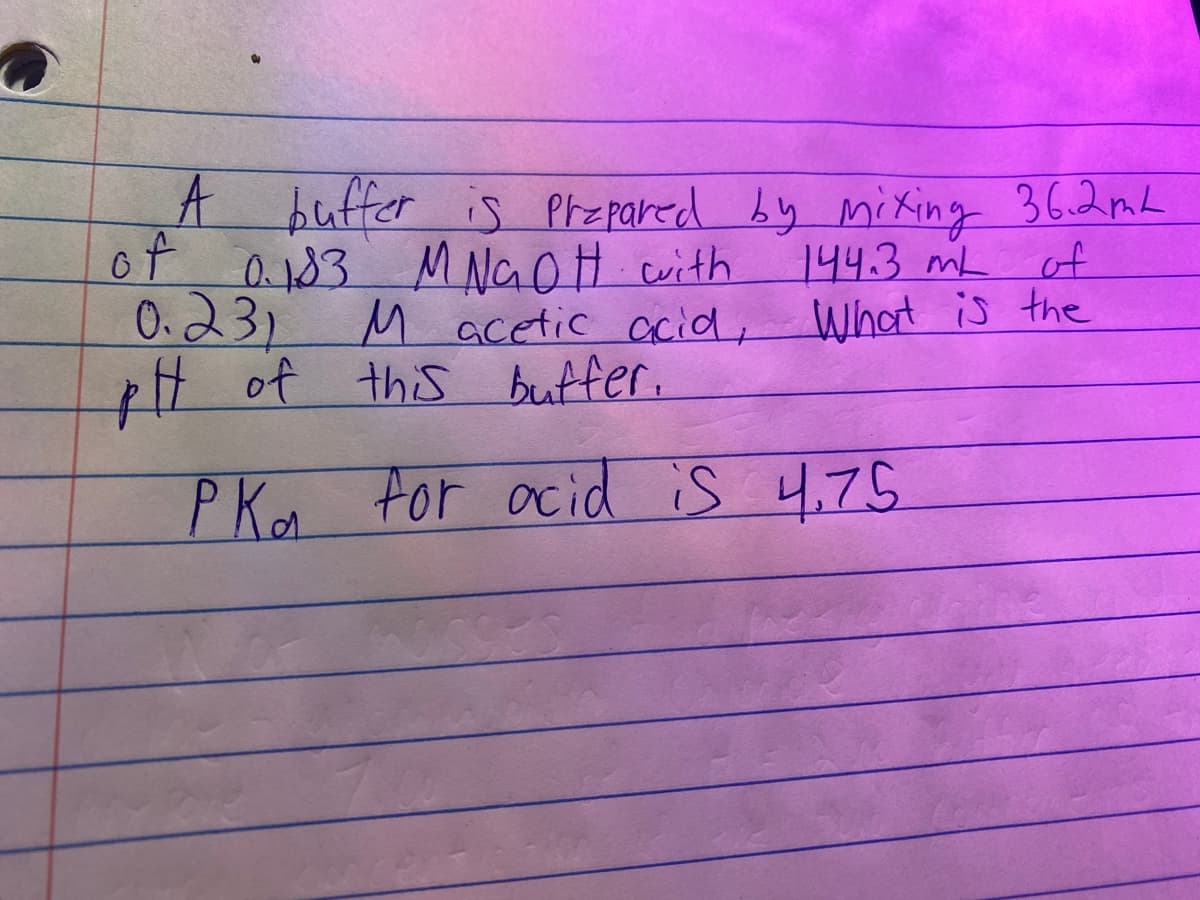 A buffer is Prepared by mixing 36.2mL
of 0.183 M NaOH with 144.3 mL of
0.231 M acetic acid, What is the
pH of this buffer.
PKa for acid is 4.75